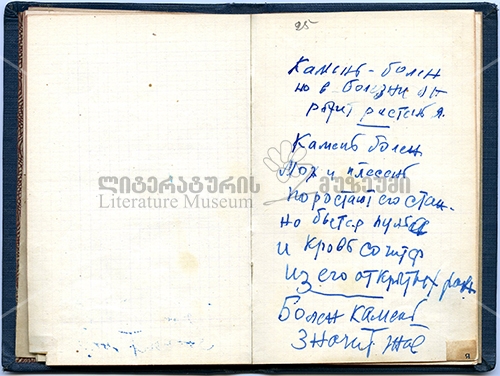 25
Камень - болен
но в болезни от
растет
Камень болен
Мох и плесень
поростают его стан.
но бьется пульс
и кровь
из его открытых ран
Болен камень
Значит жив
ლიტერატურის მუზეუმი
Literature Museum
Я